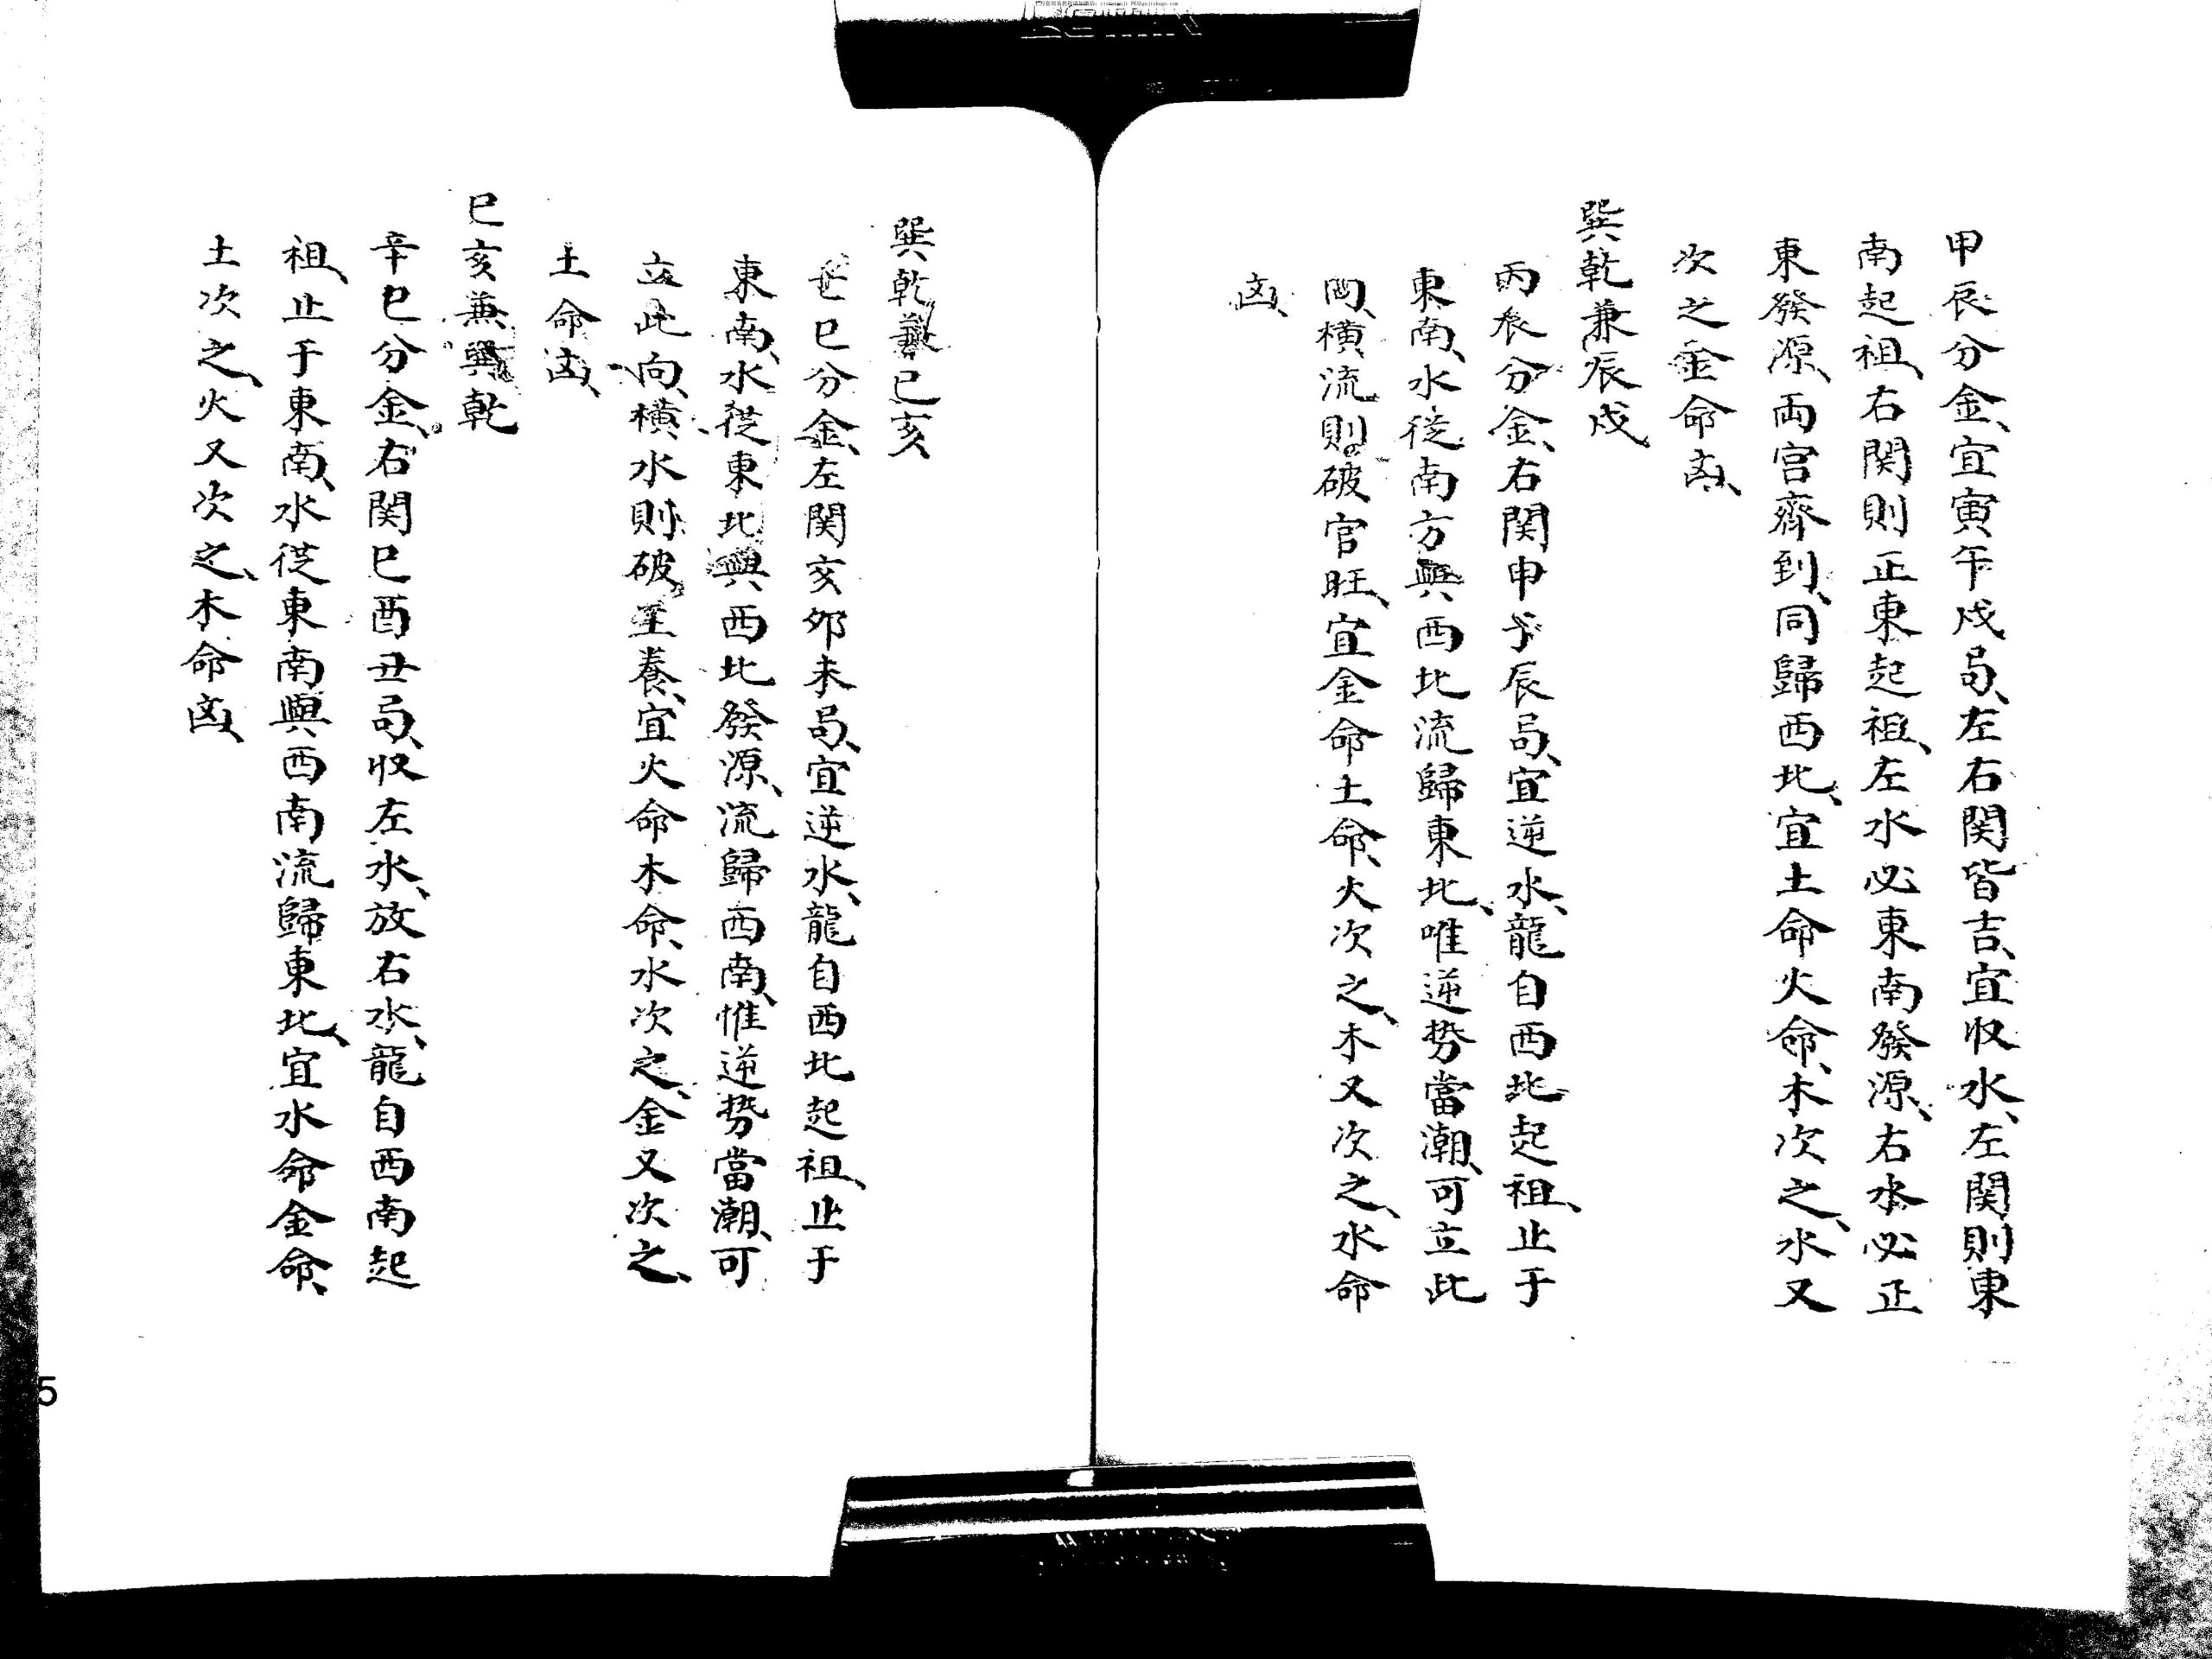 甲辰分金、宜寅午戍局、左右関皆吉、宜収水、左関則東
南起祖、右関則正東起祖、左水必東南發源、右水必正
東發源、両宮齊到、同歸西北、宜土命火命、木次之、水又
次之金命凶、
巽乾兼辰戍
丙辰分金、右関申子辰局、宜逆水、龍自西北起祖、止于
東南、水從南方與西北流歸東北、唯逆势當潮、可立此
向、橫流則破官旺、宜金命土命、火次之、木又次之、水命
凶、
巽乾兼巳亥
巳分金、左関亥夘未局、宜逆水、龍自西北起祖、止于
東南、水從東北與西北發源、流歸西南、惟逆势當潮、可
立此向、橫水則破生養、宜火命木命、水次之、金又次之、
土命凶、
巳亥兼巽乾
辛巳分金、右関巳酉丑局、収左水、放右水、龍自西南起
祖、止于東南、水從東南與西南流歸東北、宜水命金命、
土次之、火又次之、木命凶、
5